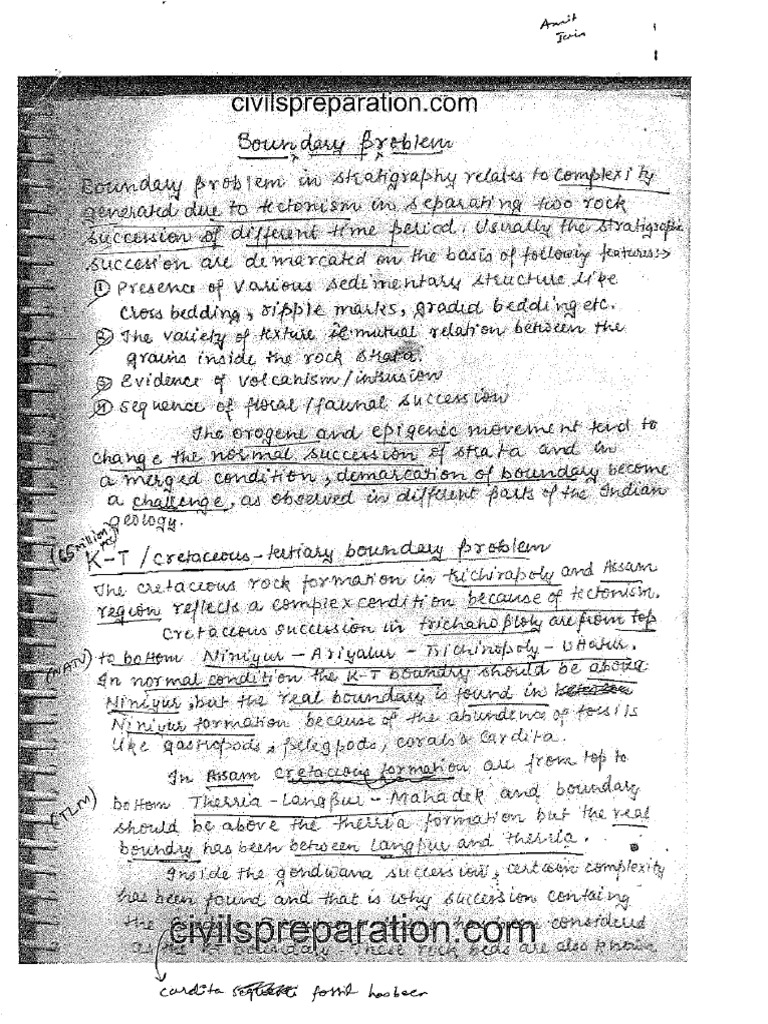 Amit
Jain
civilspreparation.com
Boundary Problem
Boundary problem in stratigraphy relates to complexity
generated due to tectonism in separating two rock
succession of different time period. Usually the stratigraphic
succession are demarcated on the basis of following features:→
① Presence of various sedimentary structure like
cross bedding, ripple marks, graded bedding etc.
② The variety of texture ie mutual relation between the
grains inside the rock strata.
③ Evidence of volcanism/intrusion
④ Sequence of floral/faunal succession
The orogene and epigenic movement tend to
change the normal succession of strata and in
a merged condition, demarcation of boundary become
a challenge, as observed in different parts of the Indian
geology.
(65 million
K-T/cretaceous-tertiary boundary problem
The cretaceous rock formation in trichirapoly and Assam
region reflects a complex condition because of tectonism.
Cretaceous succession in are from top
(NATU) to bottom Niniyur - Ariyalur - Trichinopoly - Uttatur.
In normal condition the K-T boundry should be above
Niniyur, but the real boundary is found in
Niniyur formation because of the abundence of fossils
like gastropods, pelegpods, corals & Cardita.
In Assam cretacious formation are from top to
(TLM) bottom Therria - Langpur - Mahadek and boundary
should be above the therria formation but the real
boundry has been between Langpur and therria.
Inside the gondwana succession, certain complexity
has been found and that is why succession containg
the considered
civilspreparation.com
These rock beds are also known
cardita fossil has been